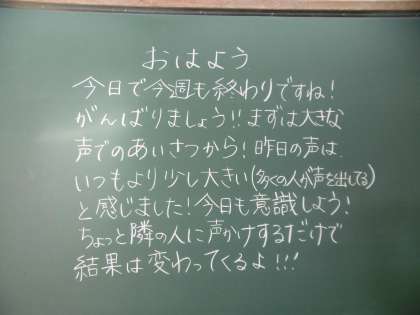 おはよう
今日で今週も終わりですね!
がんばりましょう!!まずは大きな
声でのあいさつから!昨日の声は、
いつもより少し大きい(多くの人が声を出してる)
と感じました!今日も意識しよう!
ちょっと隣の人に声かけするだけで
結果は変わってくるよ!!!